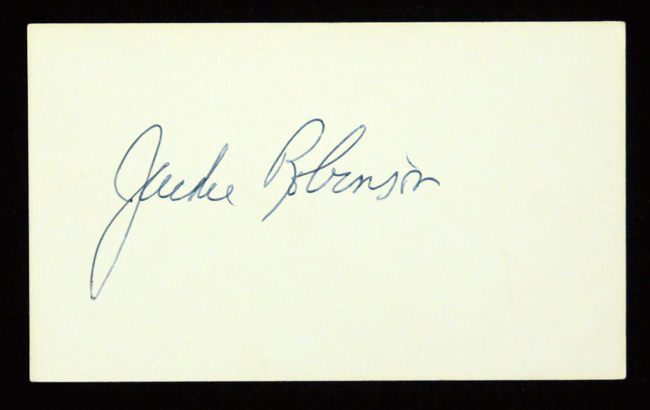 Jackie Robinson